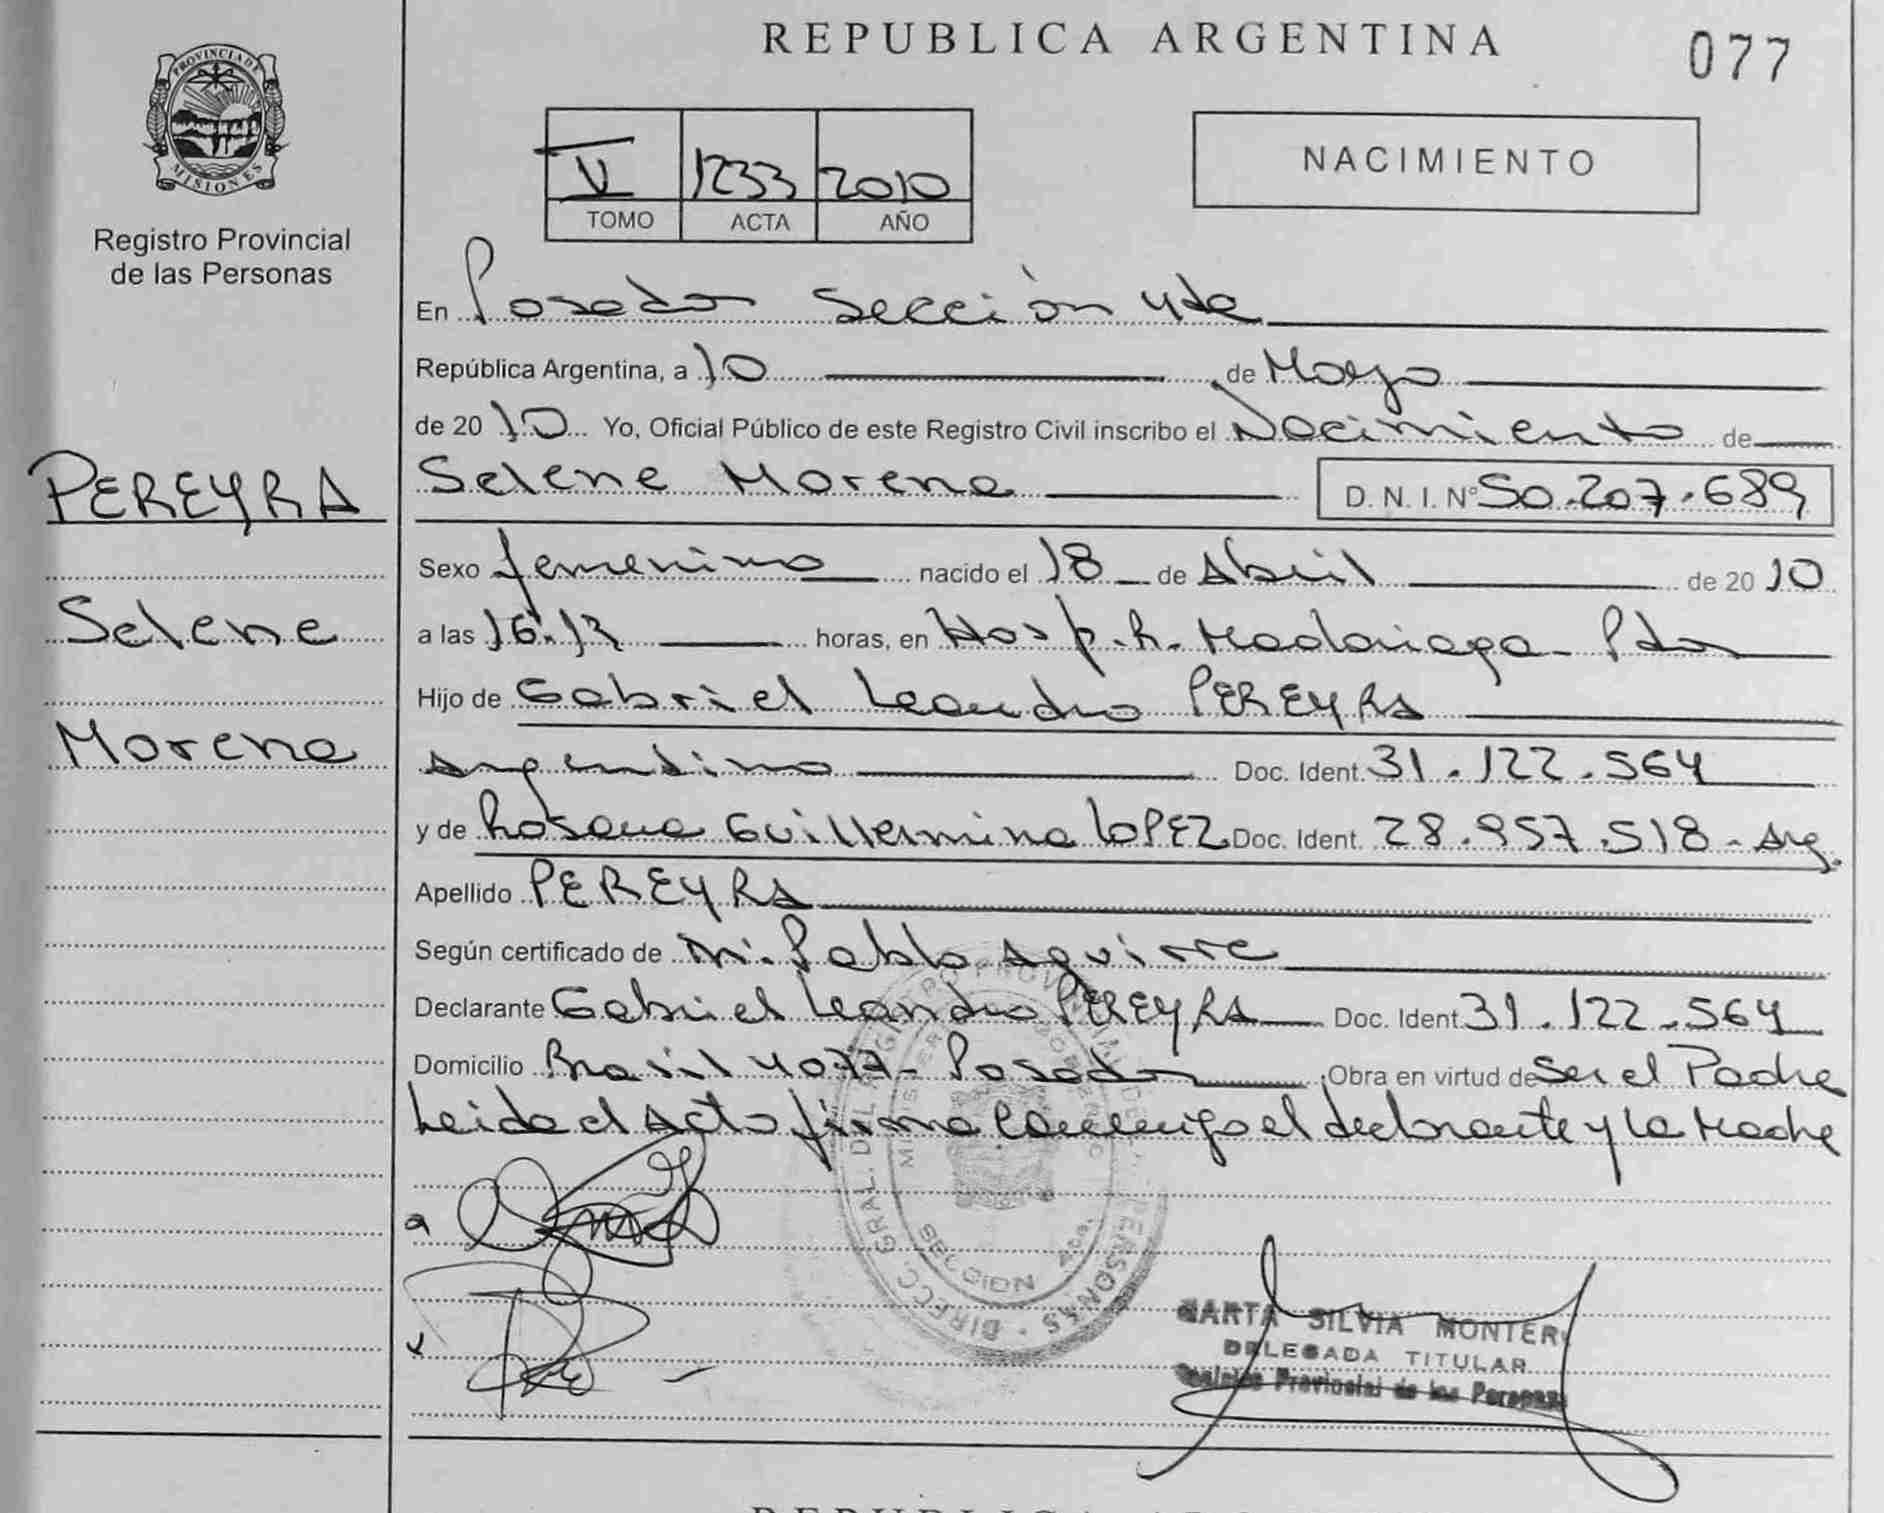 REPUBLICA ARGENTINA
077
PROVINCIA DE
MISIONES
Registro Provincial
de las Personas
V 1233 2010
TOMO ACTA AÑO
NACIMIENTO
En Posadas Sección 4ta
República Argentina, a 10 de Mayo
de 2010 Yo, Oficial Público de este Registro Civil inscribo el Nacimiento de
PEREYRA
Selene Morena
Selene Morena D. N. I. Nº 50.207.689
Sexo femenino nacido el 18 de Abril de 2010
a las 16:12 horas, en Hosp. R. Madariaga - Pdas
Hijo de Gabriel Leandro PEREYRA
Argentino Doc. Ident. 31.122.564
y de Rosana Guillermina LOPEZ Doc. Ident. 28.957.518 - Arg.
Apellido PEREYRA
Según certificado de M. Pablo Aguirre
Declarante Gabriel Leandro PEREYRA Doc. Ident 31.122.564
Domicilio Brasil 4077 - Posadas Obra en virtud de Ser el Padre
Leida el Acta firma conmigo el declarante y la Madre
DIRECC. GRAL. DEL REGISTRO PROVINCIAL DE PERSONAS
SECCION
MARTA SILVIA MONTER
DELEGADA TITULAR
Provincial de las Personas
REPUBLICA